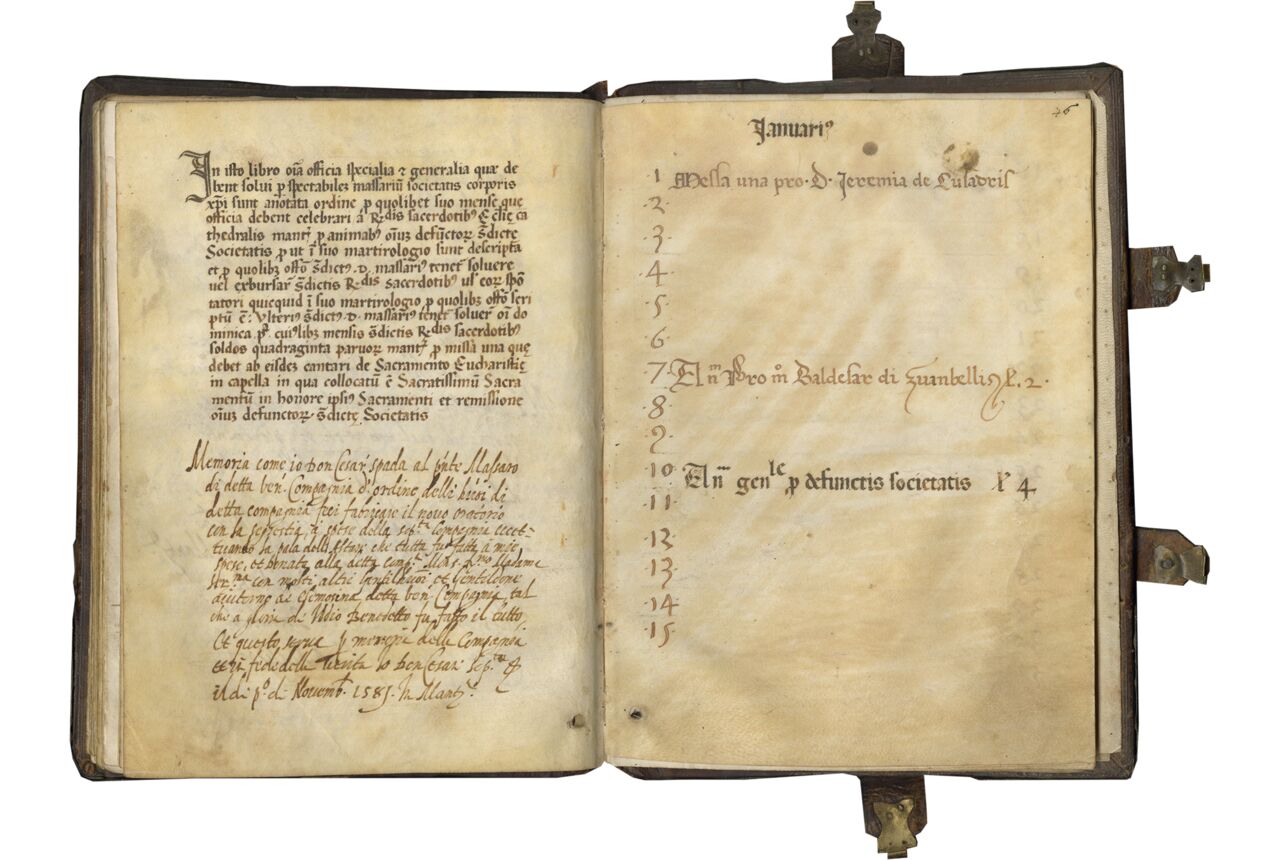 In isto libro oĩa officia specialia ⁊ generalia quæ de
bent solui p̱ spectabilez massariũ societatis corporis
xp̃i sunt anotata ordine p̱ quolibet suo mense que
officia debent celebrari a R.dis sacerdotibꝰ Ecclię ca
thedralis mantꝫ p̱ animabꝰ oiũꝫ defũctoꝝ s̃dicte
Societatis p̱ ut ĩ suo martirologio sunt descripta
et p̱ quolibꝫ offõ s̃dictꝰ .D. massariꝰ tenet̃ soluere
uel exbursar̃ s̃dictis R.dis sacerdotibꝰ ul̃ eoꝝ spõ
tatori quicquid ĩ suo martirologio p̱ quolibꝫ offõ scri
ptũ ẽ: Vlteriꝰ s̃dictꝰ .D. massariꝰ tenet̃ soluer̃ oĩ do
minica pª. cuiꝰlibꝫ mensis s̃dictis R.dis sacerdotibꝰ
soldos quadraginta paruoꝝ mantꝫ p̱ missa una quę
debet ab eisdeꝫ cantari de Sacramento Eucharistię
in capella in qua collocatũ ẽ Sacratissimũ Sacra
mentũ in honore ipsiꝰ Sacramenti et remissione
oiũꝫ defunctoꝝ s̃dictę Societatis
Memoria come io Don Cesar̃ spada al p̃nte Massaro
di detta ben. Compagnia d'ordine delli
detta compagnia feci fabricare il novo oratorio
con la a spese della Compagnia eccet-
tuando la pala dell' che tutta fu fatta a mie
spese, et donata alla detta Madame
con molti altri et Gentildone
detta ben. Compagnia, tal
che a gloria de Iddio Benedetto fu fatto il tutto,
Et questo serve p̱ della Compagnia
et in fede della verita Io Don Cesar
il dì pº. di Novemb. 1585. In Mantꝫ.
46
Januariꝰ
1 Messa una pro .D. Jeremia de Cusadris
.2.
.3.
.4.
.5.
.6.
.7. An̄ Pro m̊ Baldesar di zuanbellis L. 2.
.8.
.9.
.10. An̄ genle p̱ defunctis societatis L 4
.11.
.12.
.13.
.14.
.15.